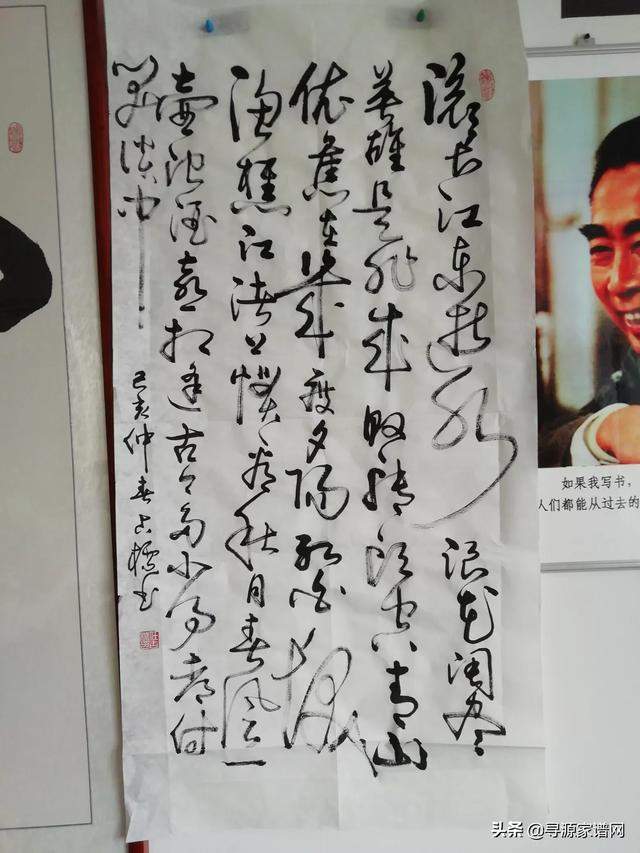 滚长江东逝水 浪花淘尽
英雄是非成败转头空青山
依旧在几度夕阳红白发
渔樵江渚上惯看秋月春风一
壶浊酒喜相逢古今多少事都付
笑谈中
己亥仲春占标书
如果我写书，
人们都能从过去的
头条 @寻源家谱网